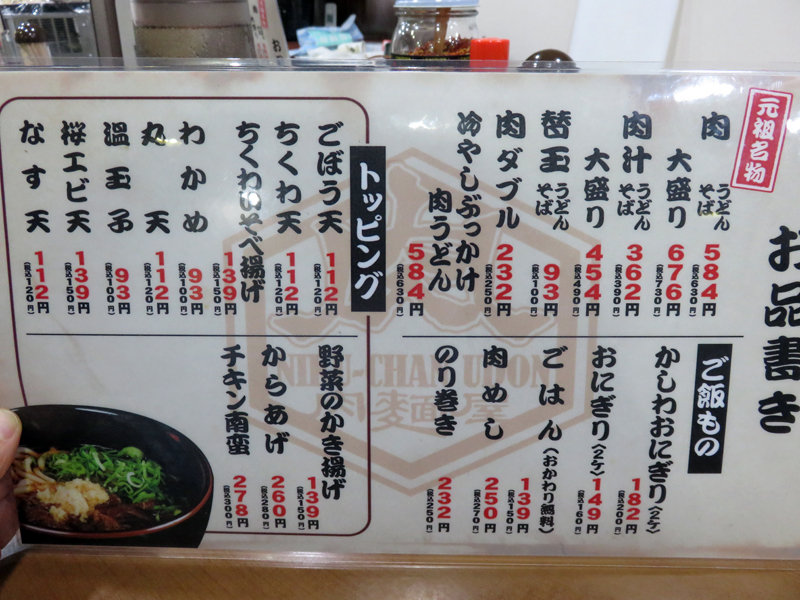 お品書き
元祖名物
肉 うどん そば 584円 (税込630円)
大盛り 676円 (税込730円)
肉汁 うどん そば 362円 (税込390円)
大盛り 454円 (税込490円)
替玉 うどん そば 93円 (税込100円)
肉ダブル 232円 (税込250円)
冷やしぶっかけ
肉うどん 584円 (税込630円)
トッピング
ごぼう天 112円 (税込120円)
ちくわ天 112円 (税込120円)
ちくわいそべ揚げ 139円 (税込150円)
わかめ 93円 (税込100円)
丸天 112円 (税込120円)
温玉子 93円 (税込100円)
桜エビ天 139円 (税込150円)
なす天 112円 (税込120円)
野菜のかき揚げ 139円 (税込150円)
からあげ 260円 (税込280円)
チキン南蛮 278円 (税込300円)
ご飯もの
かしわおにぎり(2ケ) 182円 (税込200円)
おにぎり(2ケ) 149円 (税込160円)
ごはん(おかわり無料) 139円 (税込150円)
肉めし 250円 (税込270円)
のり巻き 232円 (税込250円)
肉麺屋